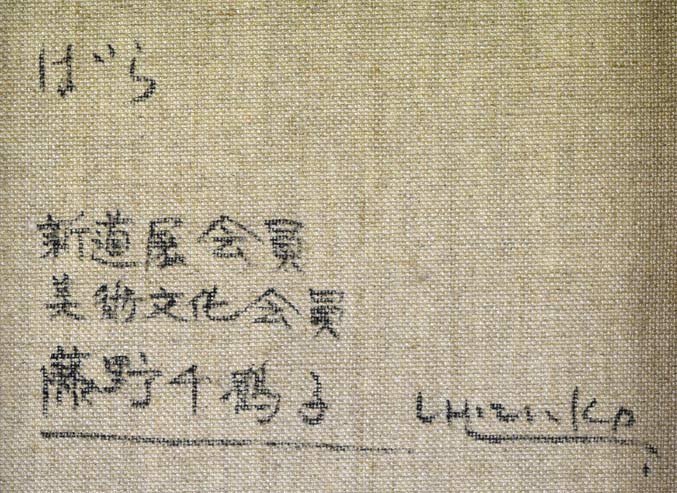 ばら
新道展会員
美術文化会員
藤野千鶴子